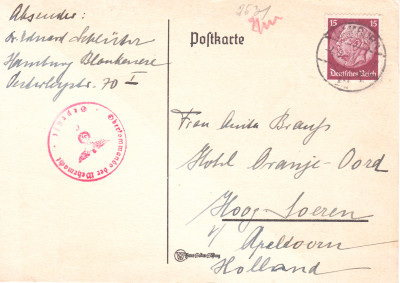 Absender:
Dr. Eduard Schlüter
Hamburg Blankenese
70 I
Postkarte
15 15
Deutsches Reich
Geprüft
Oberkommando der Wehrmacht
Frau Anita Brauß
Hotel Oranje-Oord
Hoog-Soeren
b/ Apeldoorn
Holland